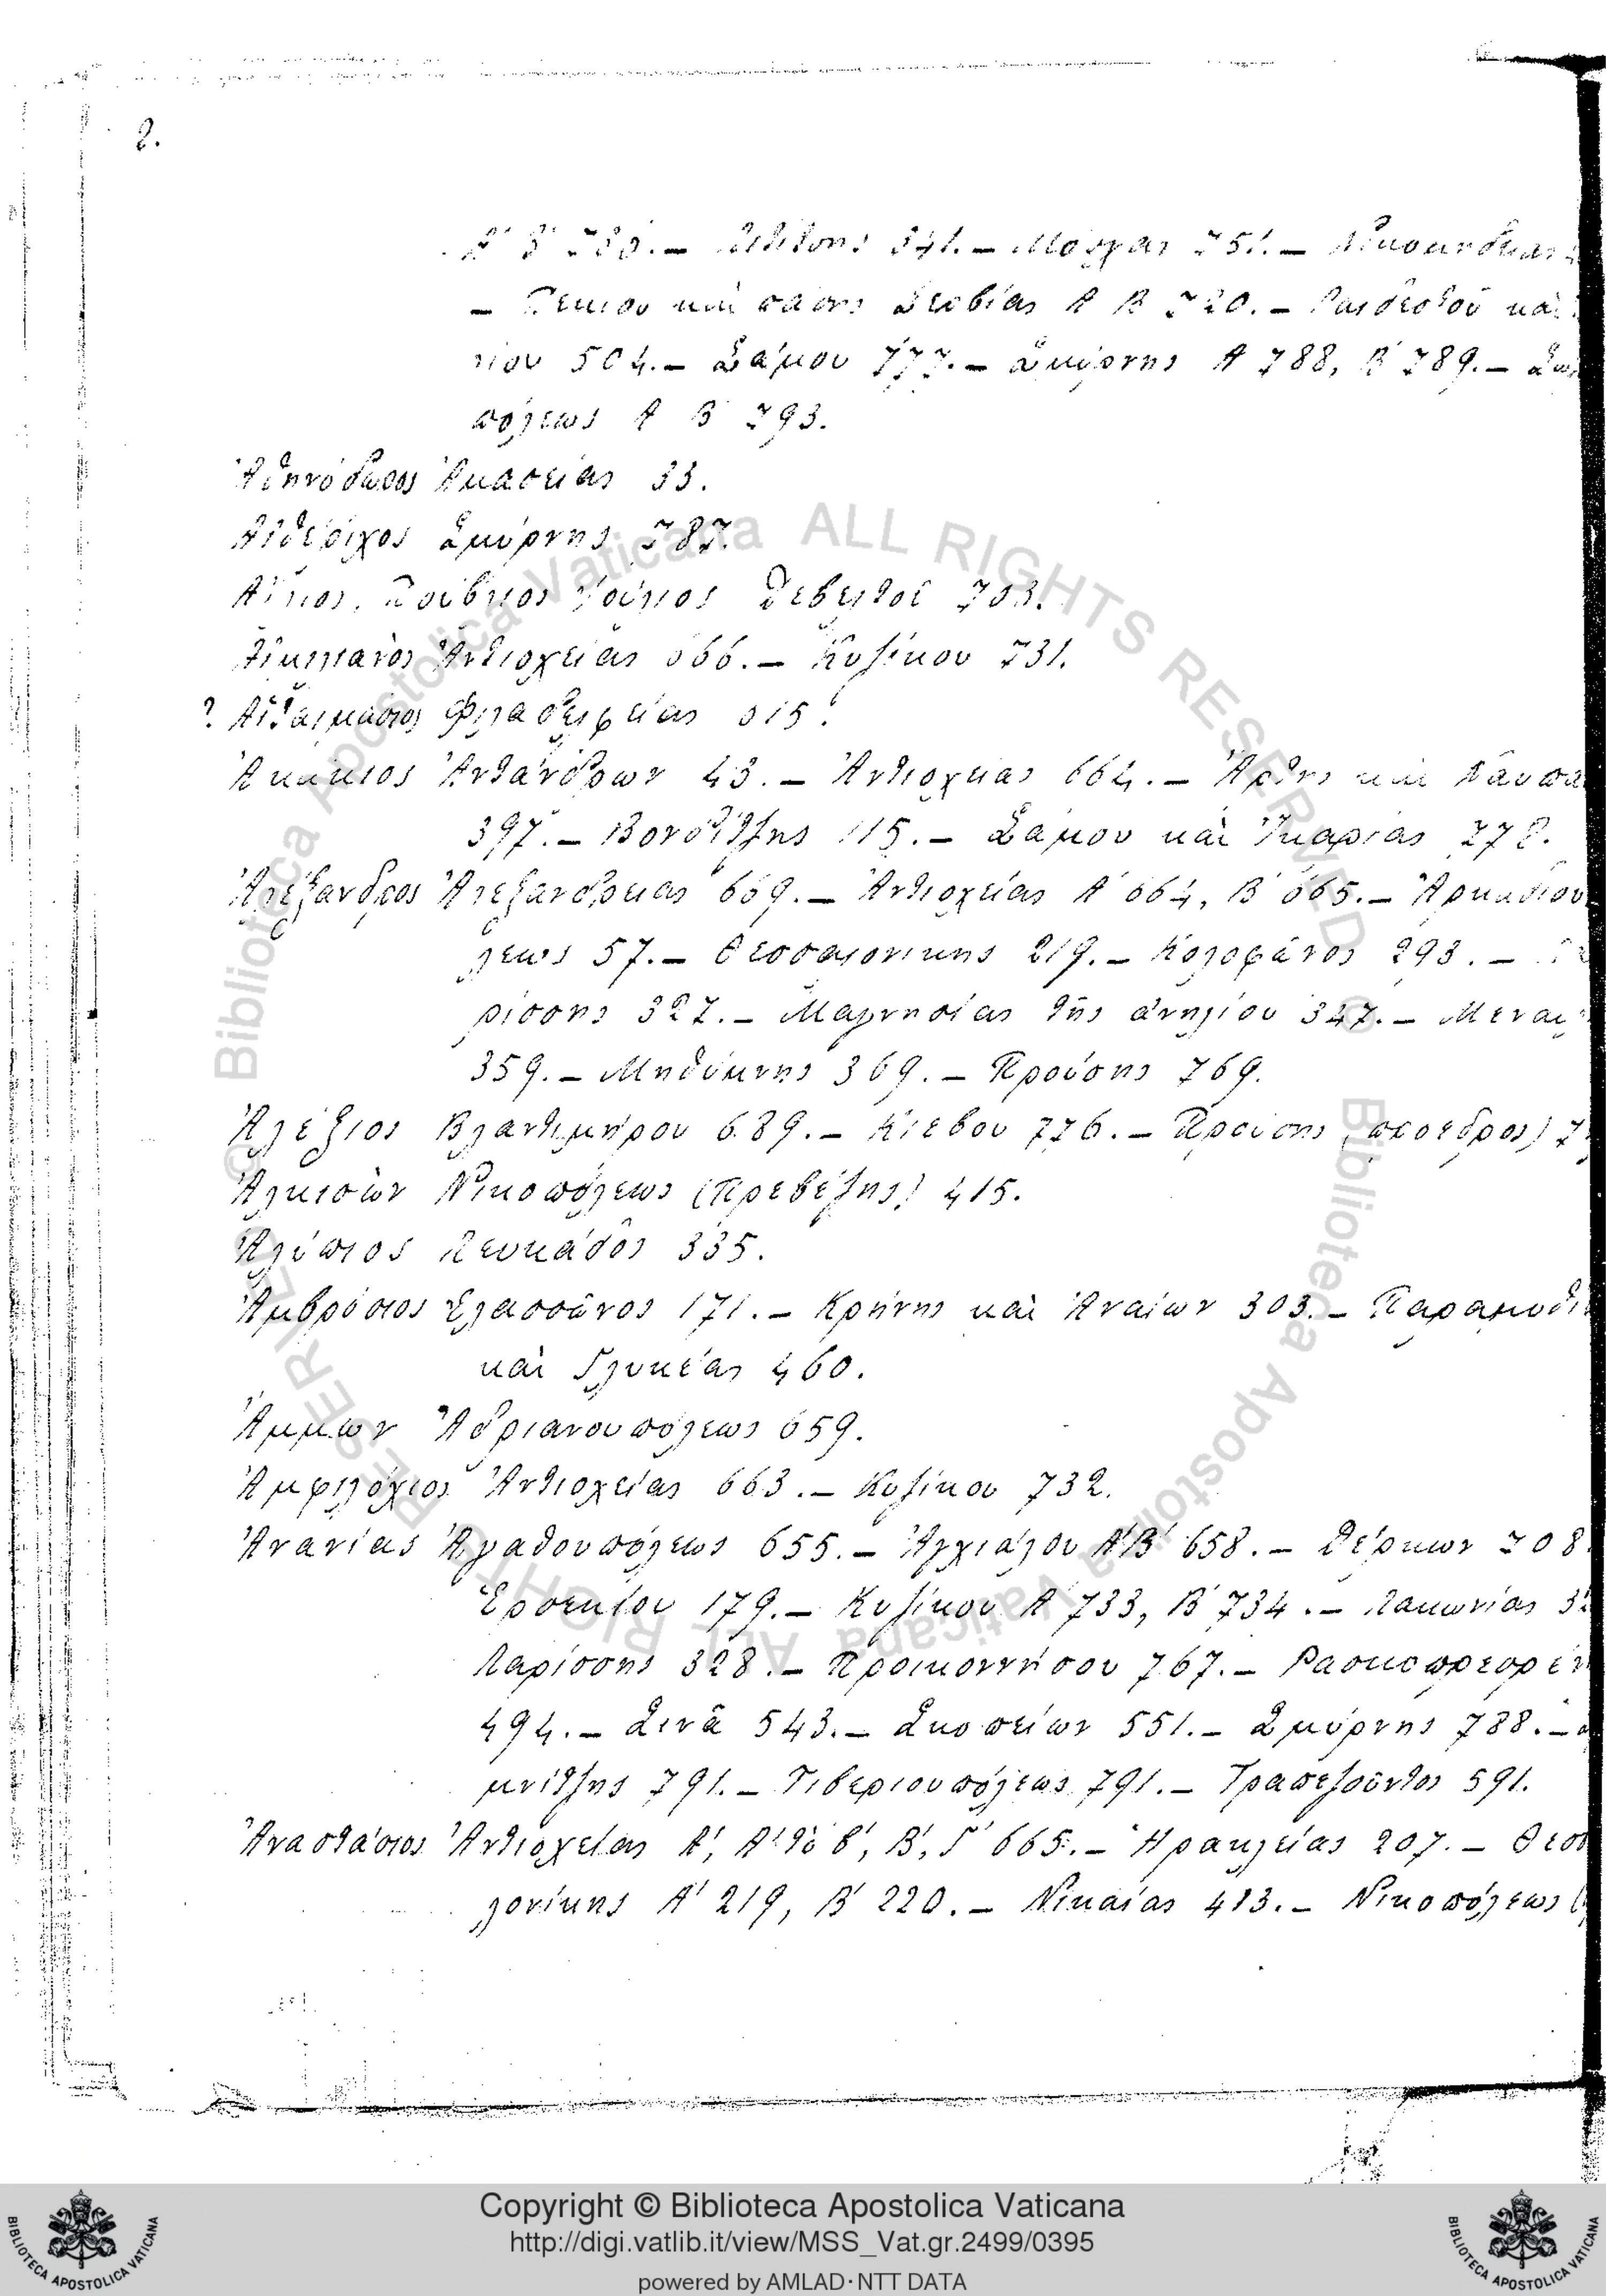 2.
751. –
– Πεκίου καὶ πάσης Σερβίας Α Β 720. – Ραιδεστοῦ καὶ
νίου 504. – Σάμου 777. – Σμύρνης Α 788, Β 789. –
πόλεως Α Β 793.
Ἀθηνόδωρος Ἀμασείας 33.
Αἰθέριχος Σμύρνης 787.
Δεβελτοῦ 703.
Αἰμιλιανὸς Ἀντιοχείας 666. – Κυζίκου 731.
? Φιλαδελφείας 615.
Ἀκάκιος Ἀντάνδρων 43. – Ἀντιοχείας 664. – Ἄρτης καὶ Ναυπά
397. – Βονδίτζης 115. – Σάμου καὶ Ἰκαρίας 278.
Ἀλέξανδρος Ἀλεξανδρείας 659. – Ἀντιοχείας Α΄ 664, Β΄ 665. – Ἀρκαδιου
λεως 57. – Θεσσαλονίκης 219. – Κολοφῶνος 293. –
ρίσσης 327. – Μαγνησίας τῆς ἀνηλίου 347. –
359. – Μηθύμνης 369. – Προύσης 769.
Ἀλέξιος Βλαντιμήρου 689. – Κιέβου 726. – Προύσης (πρόεδρος) 7
Ἀλκισὼν Νικοπόλεως (Πρεβέζης) 415.
Ἀλύπιος Λευκάδος 335.
Ἀμβρόσιος Ἐλασσῶνος 171. – Κρήνης καὶ Ἀναίων 303. – Παραμυθι
καὶ Γλυκέας 460.
Ἄμμων Ἀδριανουπόλεως 659.
Ἀμφιλόχιος Ἀντιοχείας 663. – Κυζίκου 732.
Ἀνανίας Ἀγαθουπόλεως 655. – Ἀγχιάλου Α΄Β΄ 658. – Δέρκων 708
Ἐρσεκίου 179. – Κυζίκου Α΄ 733, Β΄ 734. – Λακωνίας 32
Λαρίσσης 328. – Προικοννήσου 767. – Ρασκοπρεσρέν
494. – Σινᾶ 543. – Σκοπείων 551. – Σμύρνης 788. –
μνίτζης 791. – Τιβεριουπόλεως 791. – Τραπεζοῦντος 591.
Ἀναστάσιος Ἀντιοχείας Α΄, Α΄ τὸ β΄, Β΄, Γ΄ 665. – Ἡρακλείας 207. – Θεσσ
λονίκης Α΄ 219, Β΄ 220. – Νικαίας 413. – Νικοπόλεως (
© Biblioteca Apostolica Vaticana ALL RIGHTS RESERVED
© Biblioteca Apostolica Vaticana ALL RIGHTS RESERVED
Copyright © Biblioteca Apostolica Vaticana
http://digi.vatlib.it/view/MSS_Vat.gr.2499/0395
powered by AMLAD·NTT DATA
BIBLIOTECA APOSTOLICA VATICANA
BIBLIOTECA APOSTOLICA VATICANA